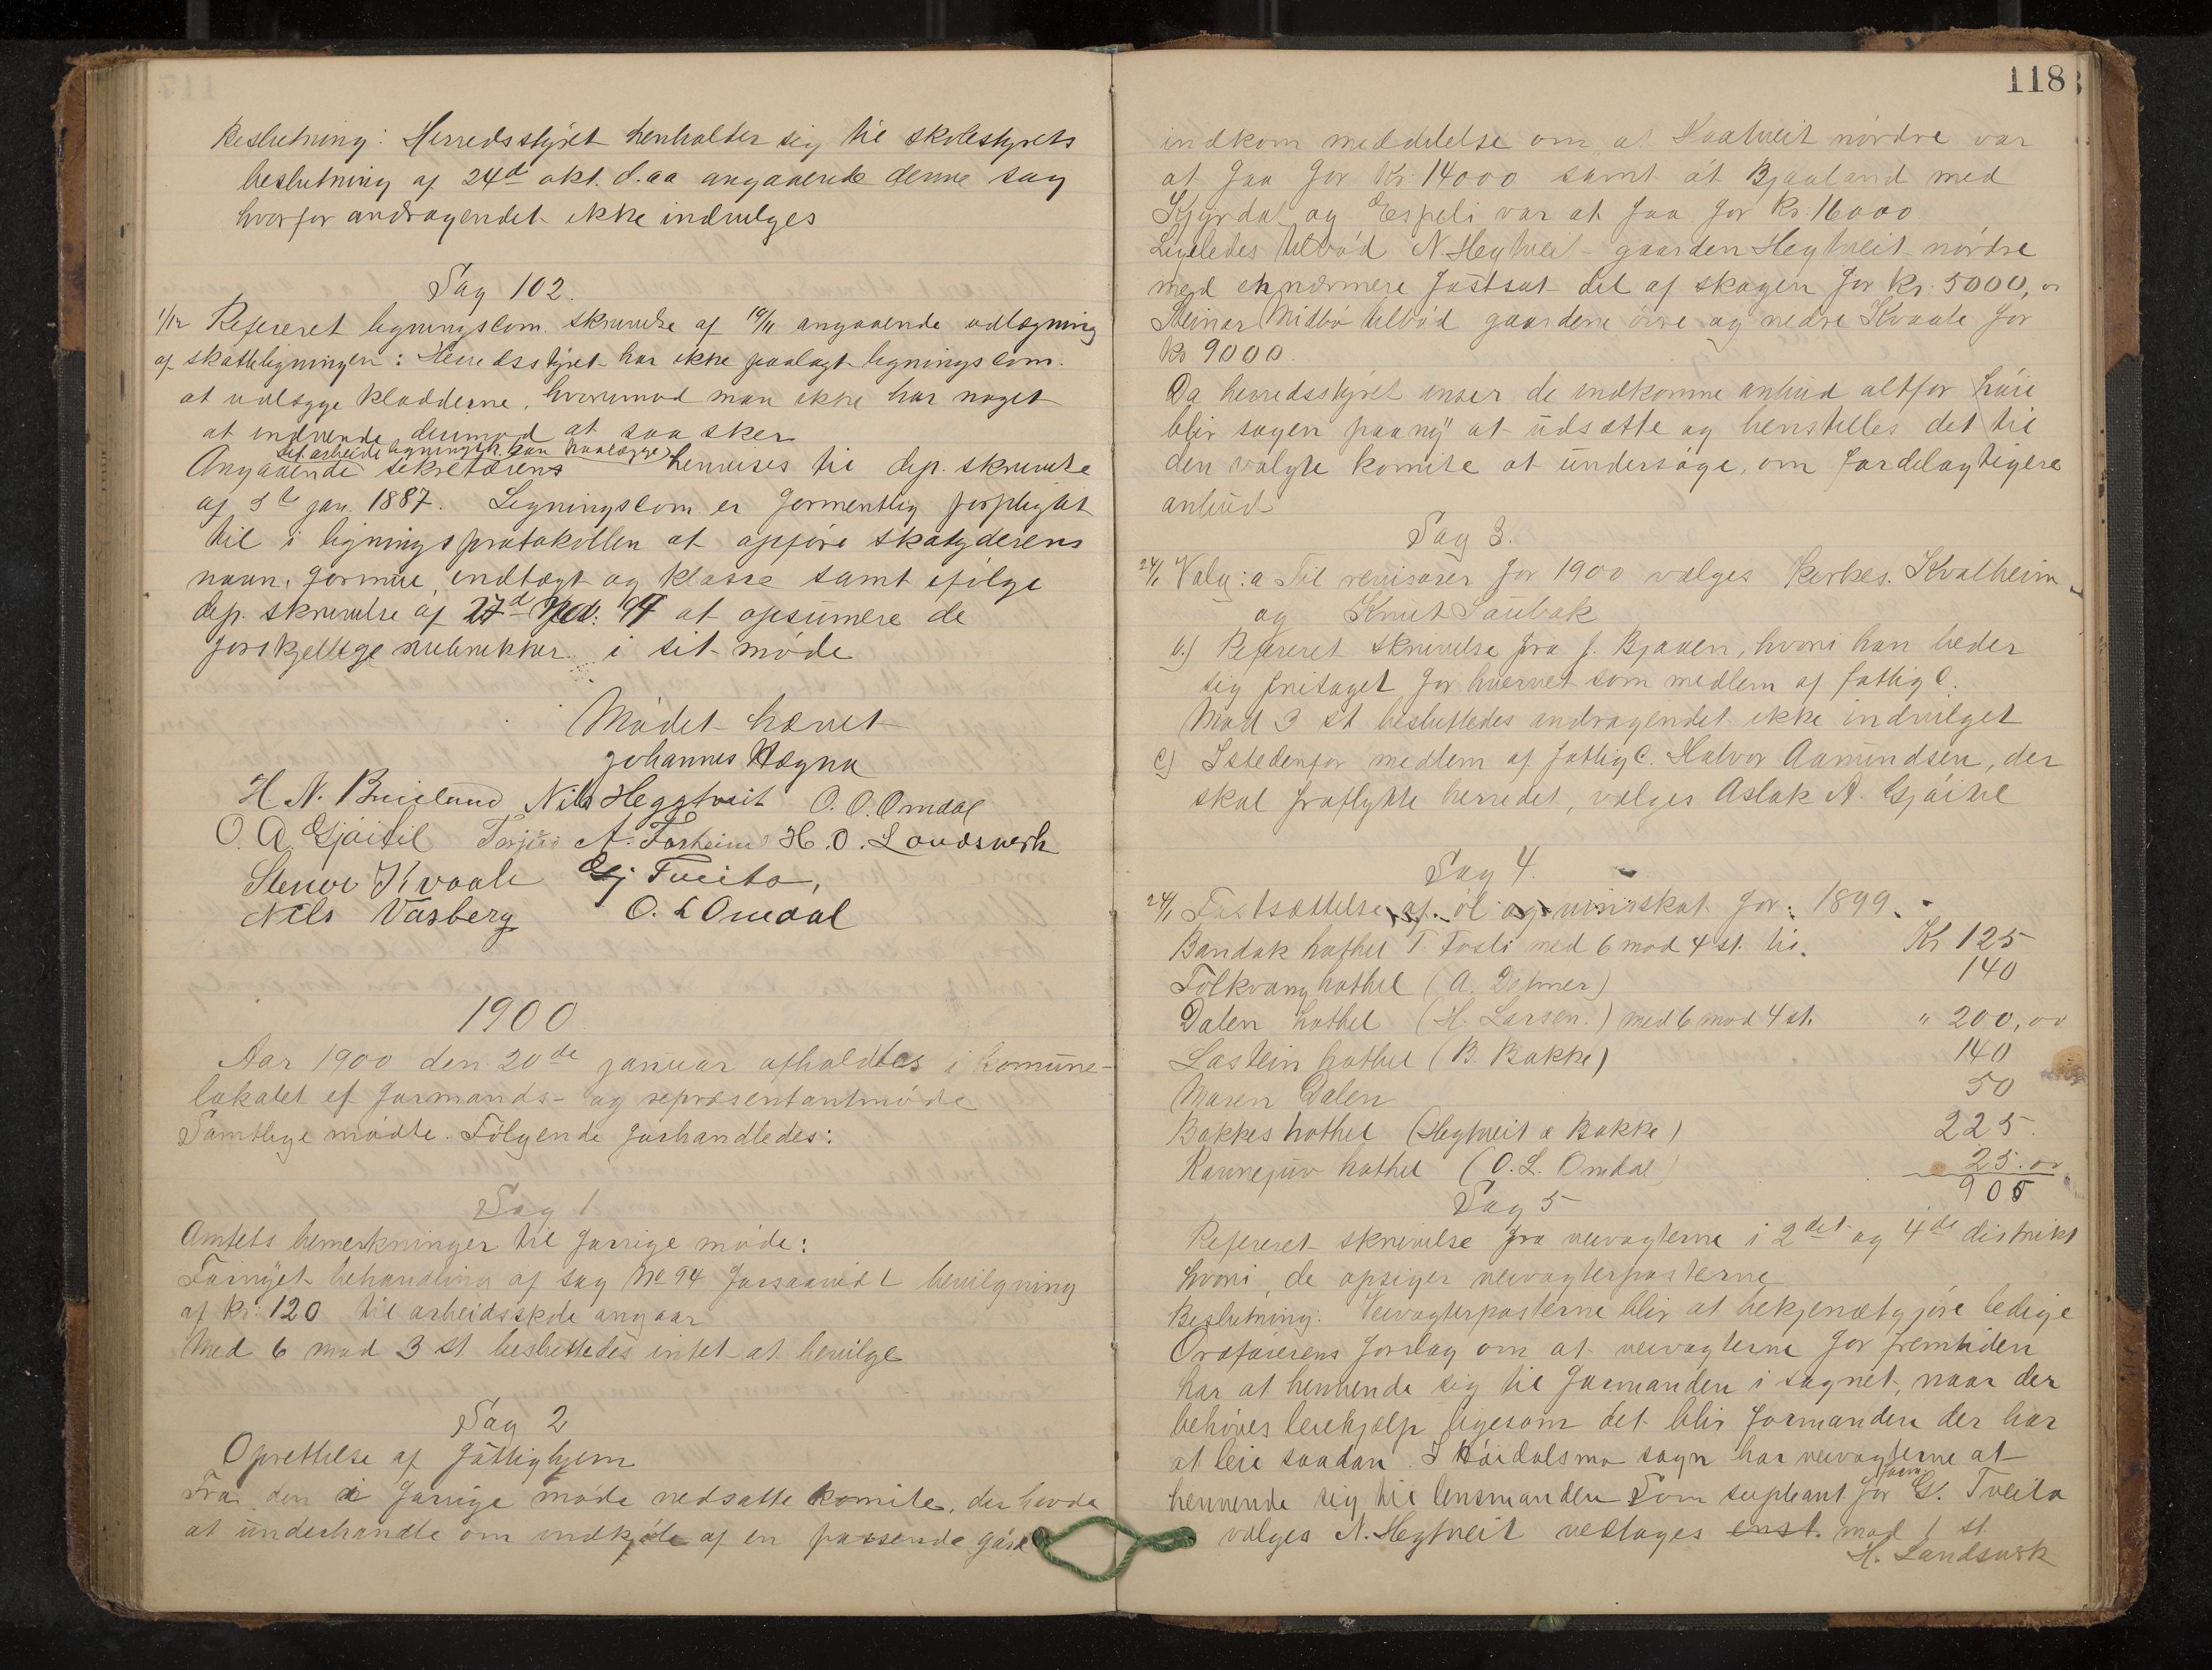 Beslutning: Herredsstyret henholder sig til skolestyrets
beslutning af 24de okt. d.aa angaaende denne sag
hvorfor andragendet ikke indvilges
Sag 102.
1/12 Refereret ligningscom. skrivelse af 19/11 angaaende udlægning
af skatteligningen: Herredsstyret har ikke paalagt ligningscom.
at udlægge kladderne, hvorimod man ikke har noget
at indvende derimod at saa sker
det arbeide ligningsk. kan paalægge
Angaaende sekretærens henvises til dep. skrivelse
af 3de jan. 1887. Ligningscom er formentlig forpligtet
til i ligningsprotokollen at opføre skatyderens
navn, formue, indtægt og klasse samt ifølge
dep. skrivelse af 27de Nov. 94 at opsumere de
forskjellige rubrikker i sit møde
Mødet hævet
Johannes Hægna
H. N. Bricland Nils Heggtveit O. O. Omdal
O. A. Gjøitil Torjus A. Forheim H. O. Landsverk
Steinar Kvaale Gj Tveito,
Nils Vasberg O. L Omdal
1900
Aar 1900 den 20de januar afholdtes i komune-
lokalet et formands- og repræsentantmøde
Samtlige mødte. Følgende forhandledes:
Sag 1
Amtets bemerkninger til forrige møde:
Fornyet behandling af sag No 94 forsaavidt bevilgning
af kr: 120 til arbeidsskole angaar
Med 6 mod 3 st besluttedes intet at bevilge
Sag 2
Oprettelse af fattighjem
Fra den i forrige møde nedsatte komite, der havde
at underhandle om indkjøb af en passende gård
118
indkom meddelelse om at Kaatveit nordre var
at faa for Kr 14000 samt at Bjaaland med
Kjyrdal og Espeli var at faa for Kr: 16000
Ligeledes tilbød N. Hegtveit gaarden Hegtveit nordre
med en nærmere fastsat del af skogen for kr: 5000, og
Steinar Midbø tilbød gaardene øvre og nedre Kvaale for
kr 9000.
Da herredsstyret anser de indkomne anbud altfor høie
blir sagen paany at udsætte og henstilles det til
den valgte komite at undersøge, om fordelagtigere
anbud
Sag 3.
24/1 Valg: a Til revisorer for 1900 vælges Kirkes. Kvalheim
og Knut Saubak
b.) Refereret skrivelse fra J. Bjaaen, hvori han beder
sig fritaget for hvervet som medlem af fattig C.
Mod 3 st besluttedes andragendet ikke indvilget
c) Istedenfor medlem af fattig C. Halvor Aamundsen, der
skal fraflytte herredet, vælges Aslak A. Gjøitil
Sag 4.
24/1 Fastsættelse af øl og vinskat for 1899.
Bandak hothel T. Fosli med 6 mod 4 st. til. Kr 125
Folkvang hothel (A. Detmer) 140
Dalen hothel (H. Larsen.) med 6 mod 4 st. " 200,00
Lastein hothel (B. Bakke) 140
Maren Dalen 50
Bakkes hothel (Hegtveit & Bakke) 225.
Ravnejuv hothel (O. L. Omdal) 25.00
905
Sag 5
Refereret skrivelse fra veivogterne i 2det og 4de distrikt
hvori de opsiger veivogterposterne
Beslutning: Veivogterposterne blir at bekjendtgjøre ledige
Ordførerens forslag om at veivogterne for fremtiden
har at henvende sig til formanden i sognet, naar der
behøves leiehjælp ligesom det blir formanden der har
at leie saadan. I Høidalsmo sogn har veivogterne at
henvende sig til lensmanden Som supleant for G. Tveito
vælges N. Hegtveit vedtages enst. mod 1 st.
H. Landsverk